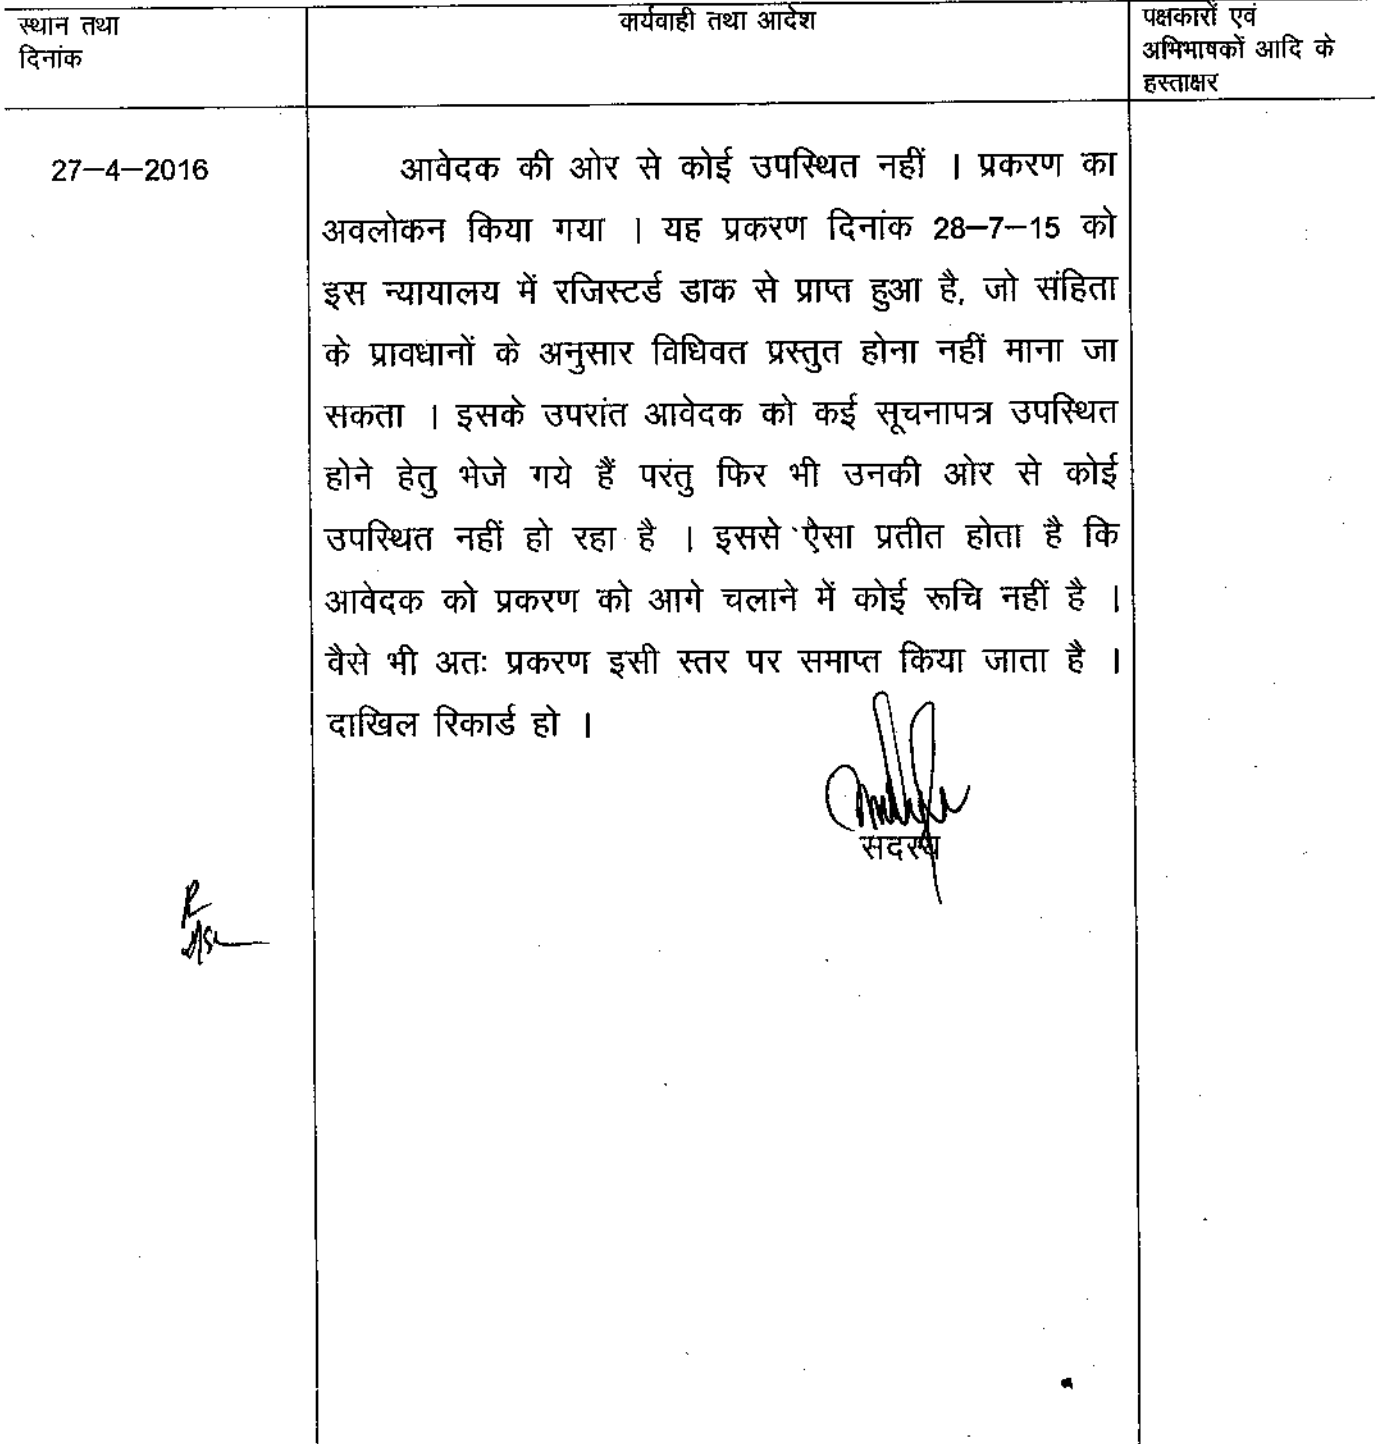 स्थान तथा
दिनांक
कार्यवाही तथा आदेश
पक्षकारों एवं
अभिभाषकों आदि के
हस्ताक्षर
27-4-2016
आवेदक की ओर से कोई उपस्थित नहीं । प्रकरण का
अवलोकन किया गया । यह प्रकरण दिनांक 28-7-15 को
इस न्यायालय में रजिस्टर्ड डाक से प्राप्त हुआ है, जो संहिता
के प्रावधानों के अनुसार विधिवत प्रस्तुत होना नहीं माना जा
सकता । इसके उपरांत आवेदक को कई सूचनापत्र उपस्थित
होने हेतु भेजे गये हैं परंतु फिर भी उनकी ओर से कोई
उपस्थित नहीं हो रहा है । इससे ऐसा प्रतीत होता है कि
आवेदक को प्रकरण को आगे चलाने में कोई रूचि नहीं है ।
वैसे भी अतः प्रकरण इसी स्तर पर समाप्त किया जाता है ।
दाखिल रिकार्ड हो ।
सदस्य